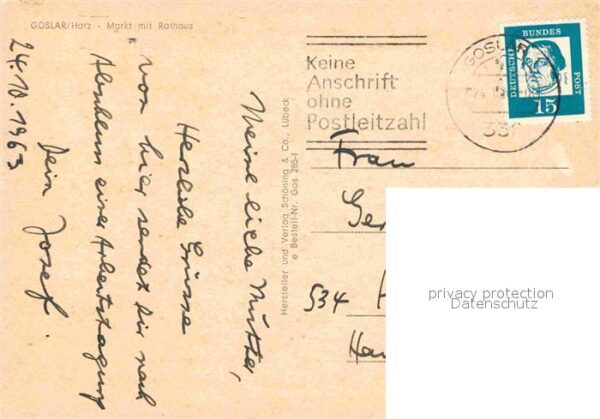 GOSLAR/Harz - Markt mit Rathaus
24.10.1963
Meine liebe Mutter,
Herzliche Grüsse
von hier sendet dir nach
Abschluss einer Arbeitstagung
Dein Josef.
Hersteller und Verlag Schöning & Co., Lübeck
Bestell-Nr. Gos 285-I
Keine
Anschrift
ohne
Postleitzahl
GOSLAR
24.
DEUTSCHE
BUNDES
POST
15
Frau
534
privacy protection
Datenschutz